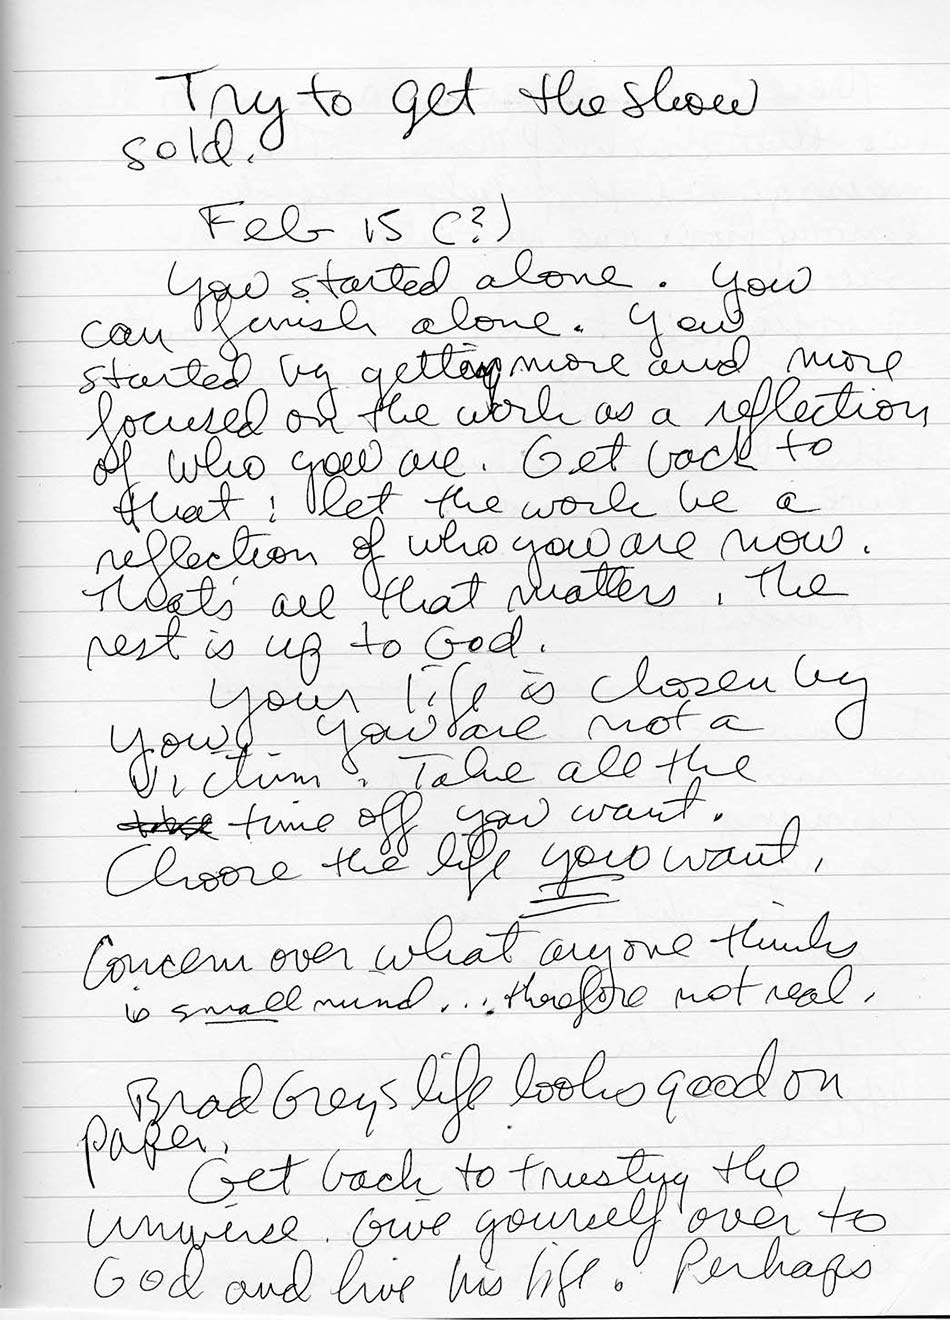 Try to get the show
sold.
Feb 15 (?)
You started alone. You
can finish alone. You
started by getting more and more
focused on the work as a reflection
of who you are. Get back to
that; let the work be a
reflection of who you are now.
That's all that matters. The
rest is up to God.
Your life is chosen by
you. You are not a
victim. Take all the
time off you want.
Choose the life you want.
Concern over what anyone thinks
is small mind... therefore not real.
Brad Grey's life looks good on
paper.
Get back to trusting the
Universe. Give yourself over to
God and live his life. Perhaps